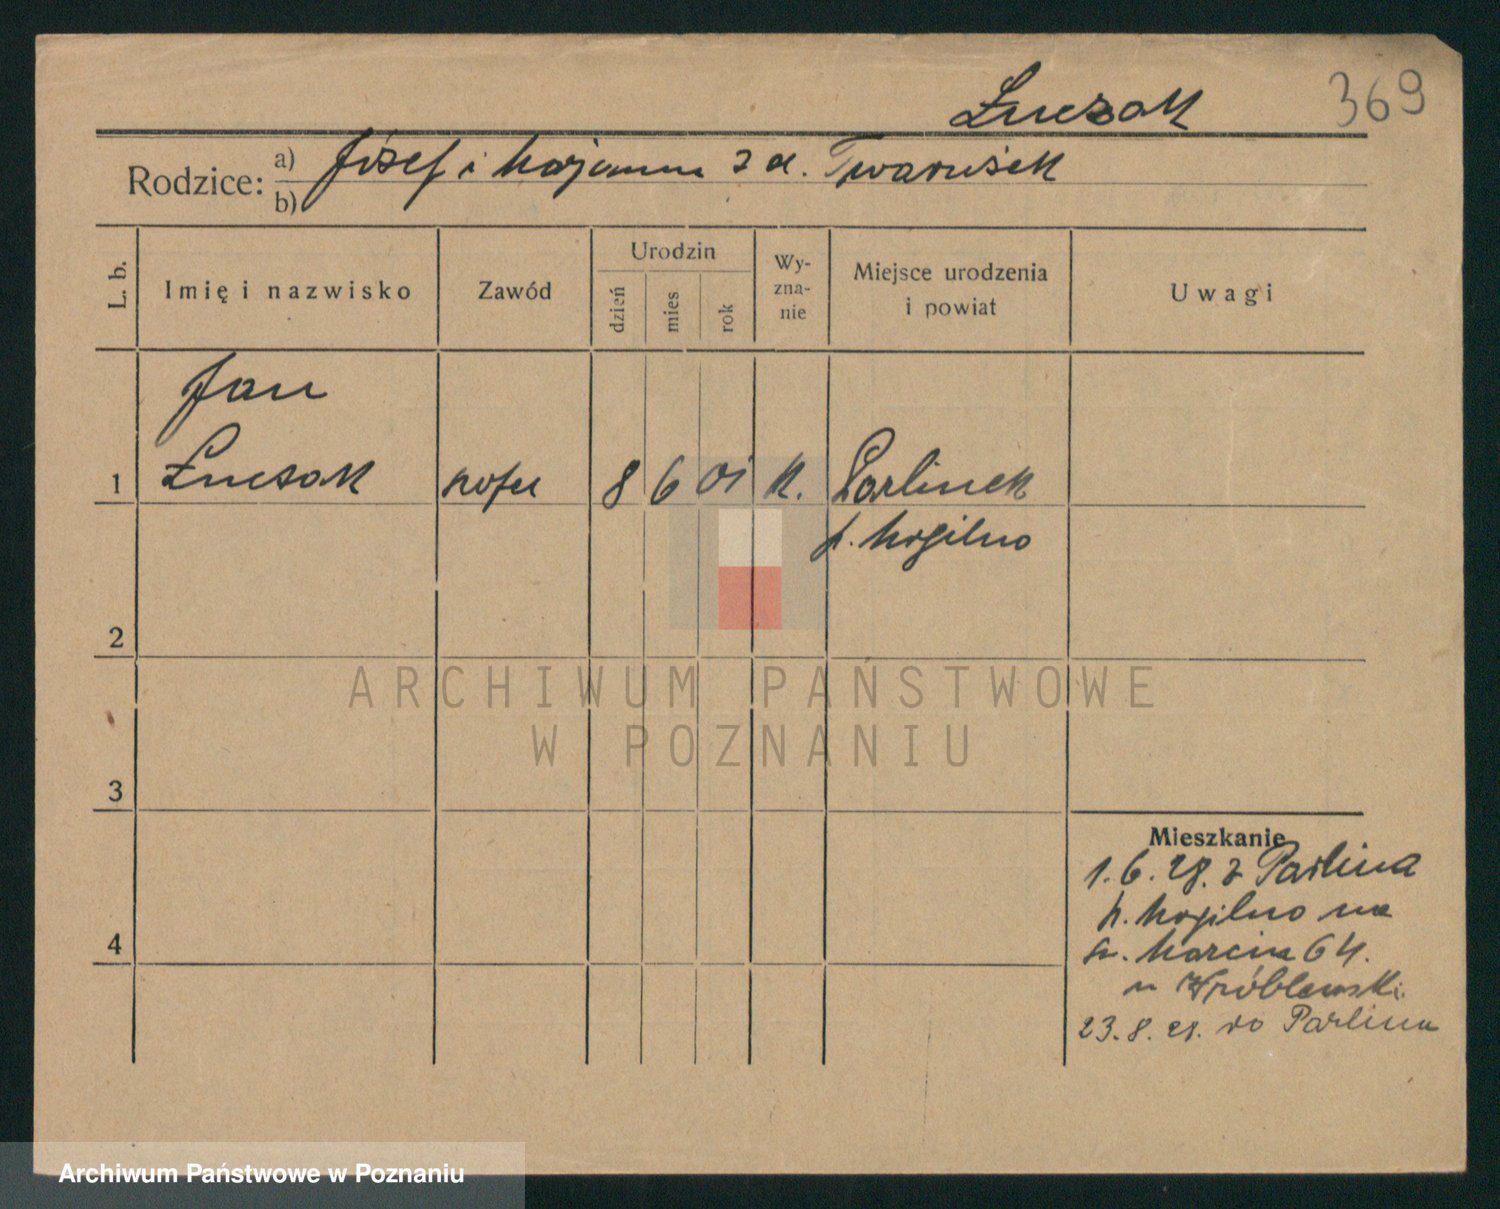 Łuczak
369
Rodzice:
a) Józef i Marjanna z d. Twarużek
b)
L. b.
Imię i nazwisko
Zawód
Urodzin
dzień
mies
rok
Wy-
zna-
nie
Miejsce urodzenia
i powiat
Uwagi
Jan
1 Łuczak szofer 8 6 01 k. Parlinek
p. Mogilno
2
3
4
Mieszkanie
1.6.28. z Parlina
p. Mogilno na
św. Marcin 64.
u Wróblewski.
23.8.28. do Parlina
ARCHIWUM PAŃSTWOWE
W POZNANIU
Archiwum Państwowe w Poznaniu